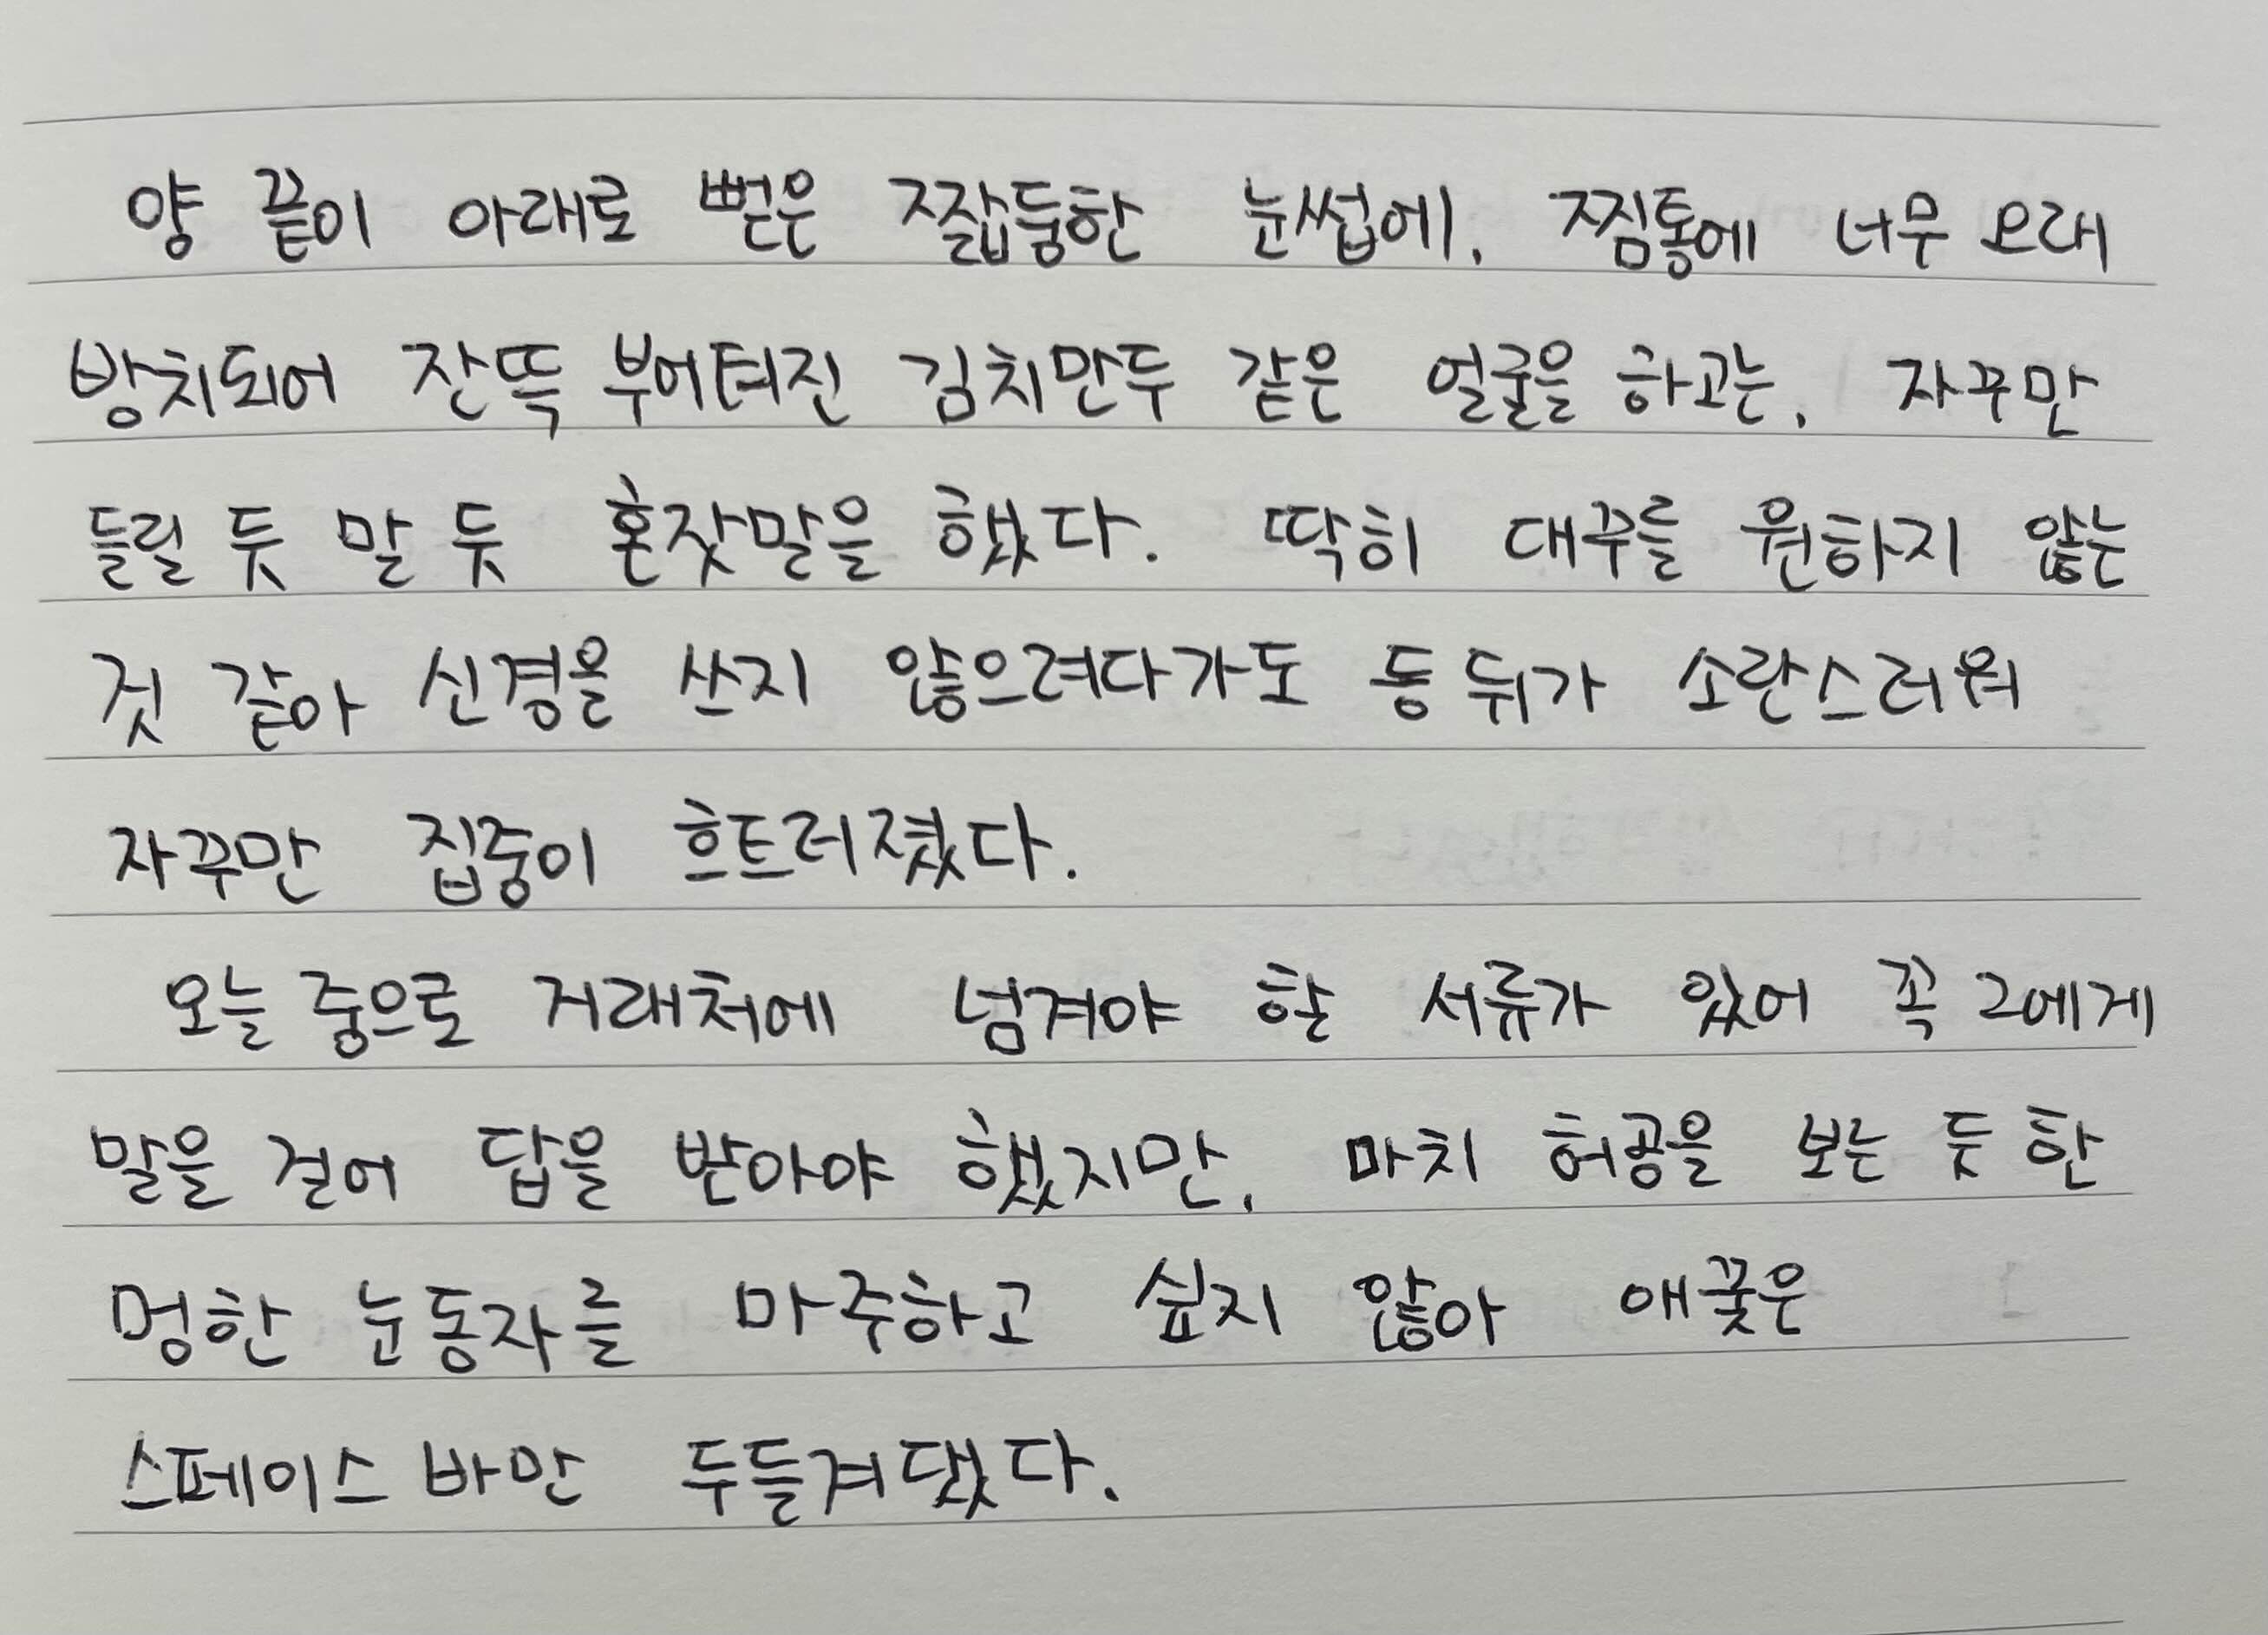 양 끝이 아래로 뻗은 짧뚱한 눈썹에, 찜통에 너무 오래
방치되어 잔뜩 부어터진 김치만두 같은 얼굴을 하고는, 자꾸만
들릴 듯 말 듯 혼잣말을 했다. 딱히 대꾸를 원하지 않는
것 같아 신경을 쓰지 않으려다가도 등 뒤가 소란스러워
자꾸만 집중이 흐트러졌다.
오늘 중으로 거래처에 넘겨야 할 서류가 있어 꼭 그에게
말을 걸어 답을 받아야 했지만, 마치 허공을 보는 듯 한
멍한 눈동자를 마주하고 싶지 않아 애꿎은
스페이스 바만 두들겨댔다.